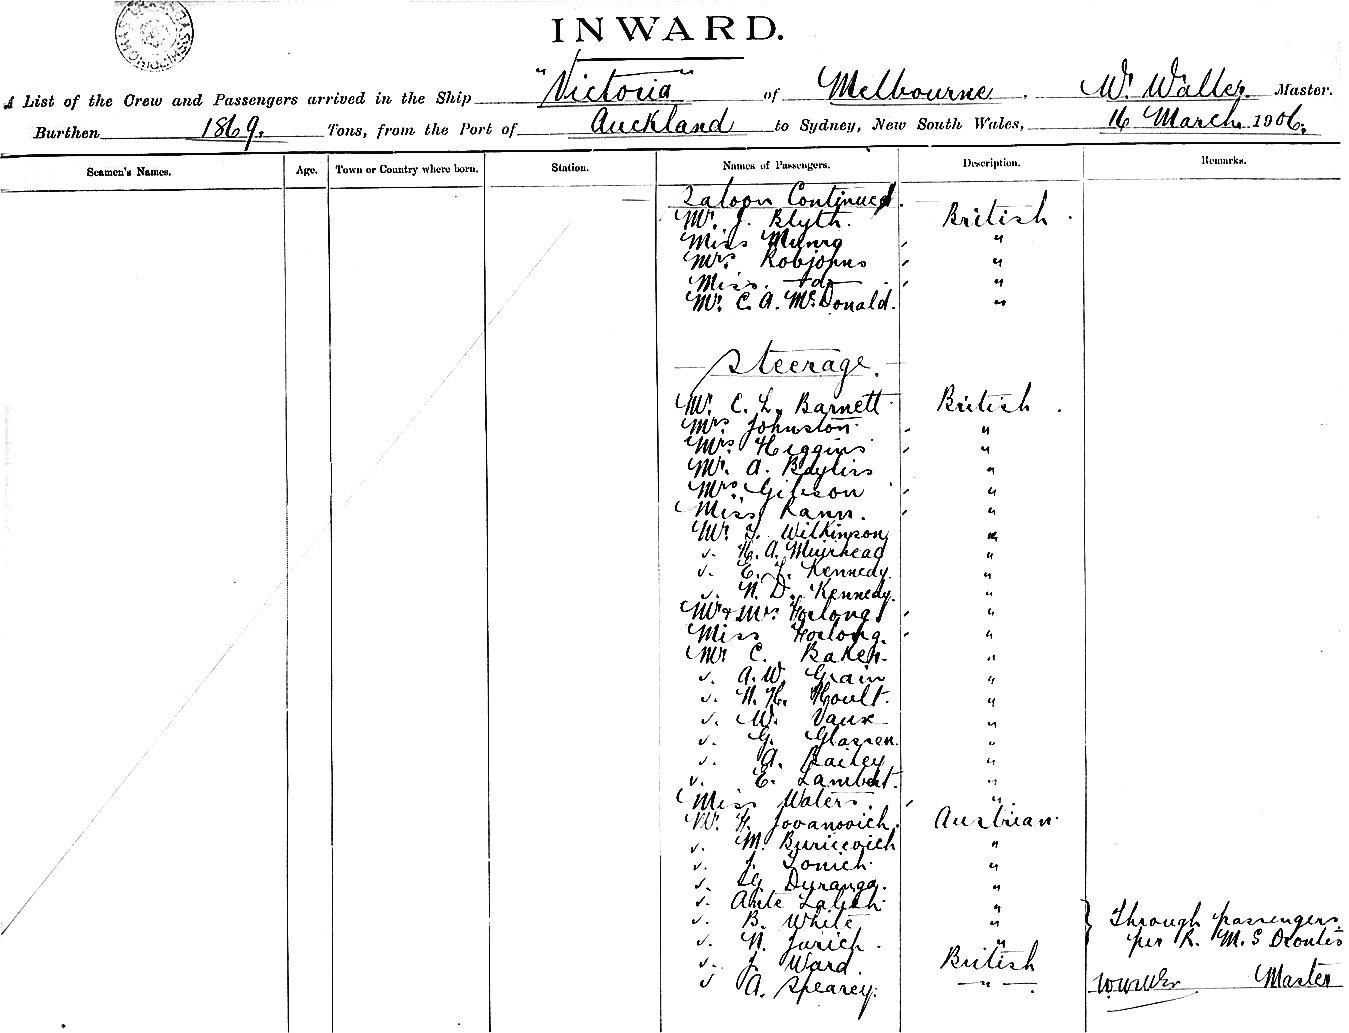 INWARD.
A List of the Crew and Passengers arrived in the Ship "Victoria" of Melbourne, W. Waller Master.
Burthen 1869. Tons, from the Port of Auckland to Sydney, New South Wales, 16 March 1906.
Seamen's Names. Age. Town or Country where born. Station. Names of Passengers. Description. Remarks.
Saloon Continued.
Mr. J. Blyth. British.
Miss Munro "
Mrs. Robjohns "
Miss. do "
Mr. C. A. McDonald. "
Steerage.
Mr. C. L. Barnett British.
Mrs Johnston. "
Mrs Higgins "
Mr. A. Bayliss "
Mrs. Gibson "
Miss Rann. "
Mr. J. Wilkinson "
". H. A. Muirhead "
". E. J. Kennedy. "
". N. D. Kennedy. "
Mr & Mrs Forlong "
Miss Forlong. "
Mr C. Baker. "
". A. W. Grain "
". N. H. Hoult. "
". W. Vaux "
". G. Glassen. "
". A. Bailey "
". E. Lambert. "
Miss Waters. "
Mr. F. Jovanovich. Austrian.
". M. "
". J. "
". "
". Ante "
". B. White "
". N. Jurich. "
". J. Ward. British
" A. Spearey. "
Through passengers
per R. M. S
Master